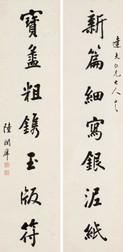 新篇細寫銀泥紙
達夫仁兄大人正
寶盝粗鐫玉版符
陸潤庠